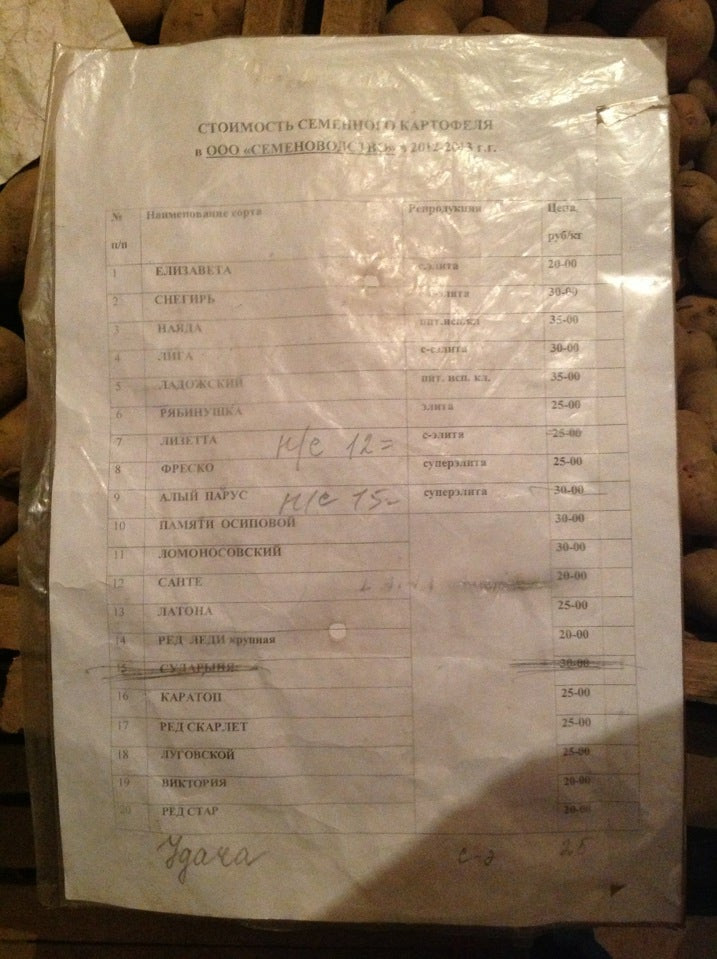 СТОИМОСТЬ СЕМЕННОГО КАРТОФЕЛЯ
в ООО «СЕМЕНОВОДСТВО» в 2012-2013 г.г.
№ п/п Наименование сорта Репродукция Цена, руб/кг
1 ЕЛИЗАВЕТА с.элита 20-00
2 СНЕГИРЬ с-элита 30-00
3 НАЯДА пит.исп.кл 35-00
4 ЛИГА с-с.элита 30-00
5 ЛАДОЖСКИЙ пит. исп. кл. 35-00
6 РЯБИНУШКА элита 25-00
7 ЛИЗЕТТА н/с 12= с-элита 25-00
8 ФРЕСКО суперэлита 25-00
9 АЛЫЙ ПАРУС н/с 15- суперэлита 30-00
10 ПАМЯТИ ОСИПОВОЙ 30-00
11 ЛОМОНОСОВСКИЙ 30-00
12 САНТЕ 20-00
13 ЛАТОНА 25-00
14 РЕД ЛЕДИ крупная 20-00
15 СУДАРЫНЯ 30-00
16 КАРАТОП 25-00
17 РЕД СКАРЛЕТ 25-00
18 ЛУГОВСКОЙ 25-00
19 ВИКТОРИЯ 20-00
20 РЕД СТАР 20-00
Удача с-э 25